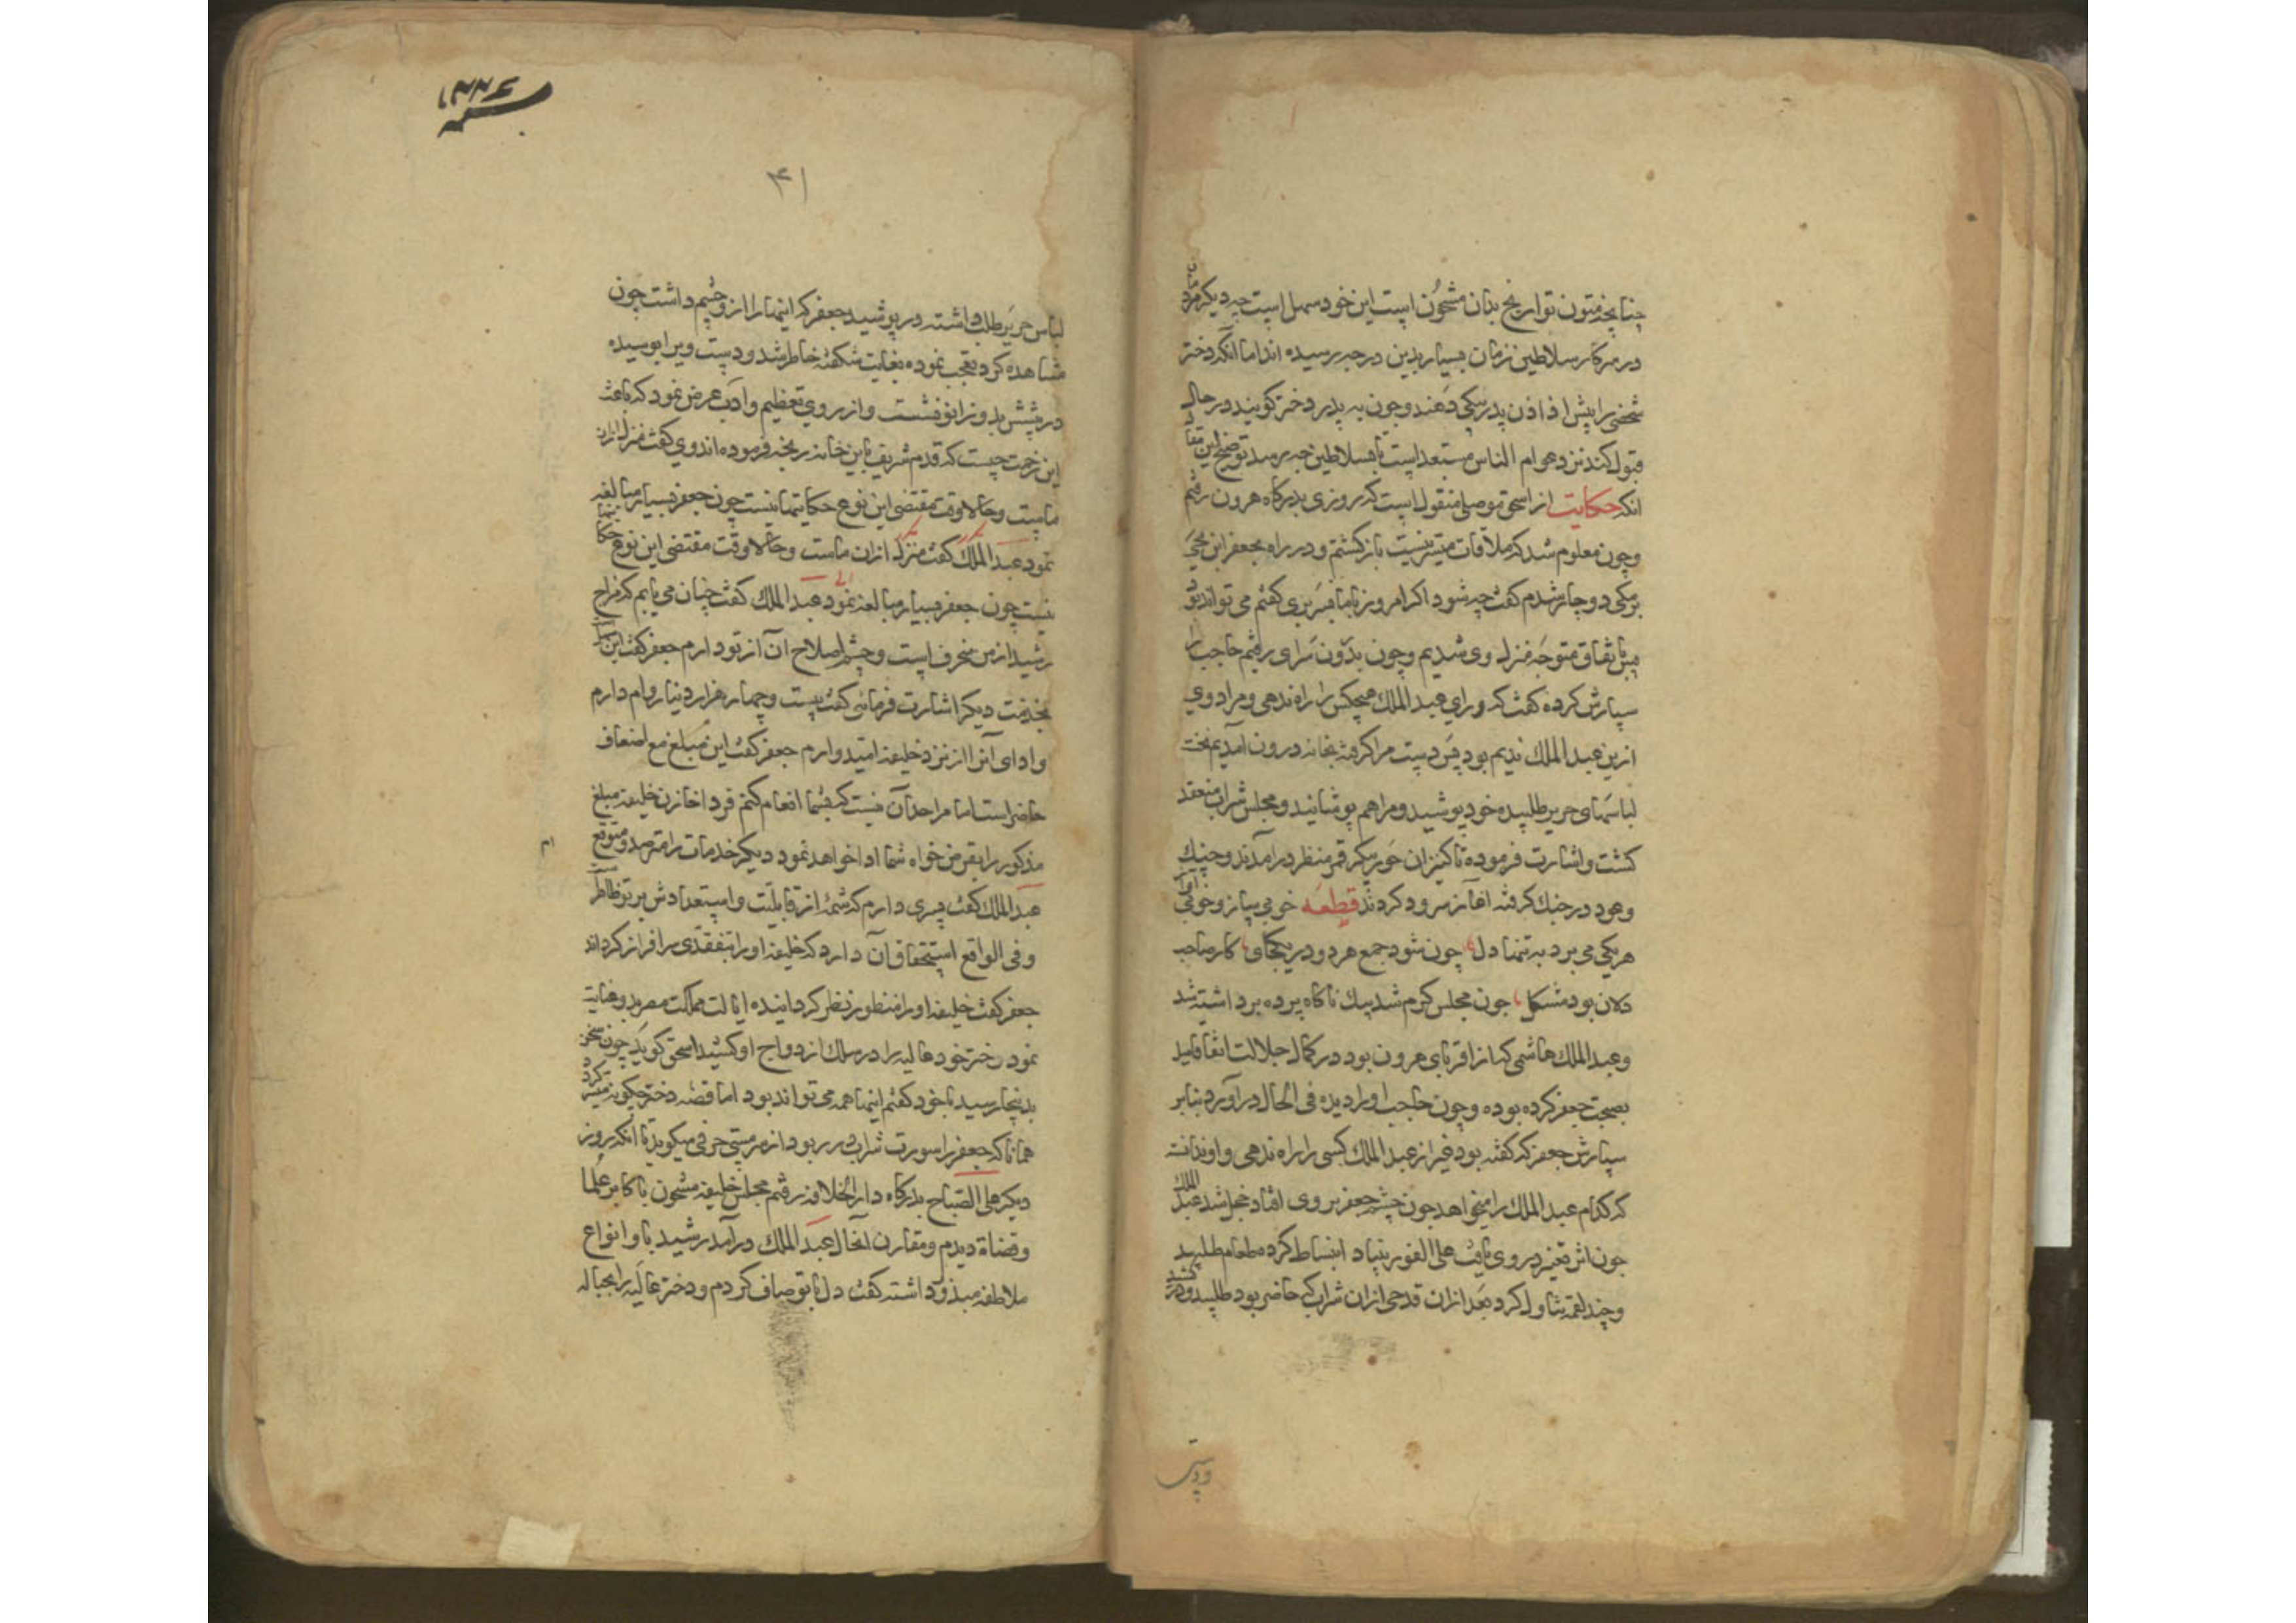 چنانچه متون تواریخ بدان مشحون است این خود سهل است چه دیگر مردمان
در سرکار سلاطین زمان بسیار بدین درجه رسیده اند اما آنکه دختر
شخصی را پیش از اذن پدر بکسی دهند و چون به پدر دختر گویند در حال
قبول کند نزد عوام الناس مستبعد است تا بسلاطین چه رسد توضیح این مقال
انکه حکایت از اسحق موصلی منقول است که روزی بدرگاه هرون رفتم
و چون معلوم شد که ملاقات میسر نیست بازگشتم و در راه بجعفر ابن یحیی
برمکی دوچار شدم گفت چه شود اگر امروز با ما بسر بری گفتم می تواند بود
پس باتفاق متوجه منزل وی شدیم و چون بدرون سرای رفتیم حاجب را
سپارش کرده گفت که ورای عبد الملک هیچکس را راه ندهی و مراد وی
ازین عبد الملک ندیم بود پس دست مرا گرفته بخانه درون آمدیم نخست
لباسهای حریر طلبیده خود پوشید و مرا هم پوشانید و مجلس شراب منعقد
گشت و اشارت فرموده تا کنیزان حور پیکر قمر منظر درآمدند و چنک
و عود در چنک گرفته آغاز سرود کردند قطعه خوبی ساز و خوبی آواز
هر یکی می برد به تنها دل چون شود جمع هر دو در یکجا و کار صاحب
دلان بود مشکل چون مجلس گرم شد بیک ناگاه پرده برداشته شد
و عبد الملک هاشمی که از اقربای هرون بود در کمال جلالت اتفاقا میل
بصحبت جعفر کرده بوده و چون حاجب او را دیده فی الحال درآورد بنابر
سپارش جعفر که گفته بود غیر از عبد الملک کسی را راه ندهی و او ندانسته
که کدام عبد الملک را میخواهد چون چشم جعفر بر وی افتاد خجل شد عبد الملک
چون اثر تغیر در وی یافت علی الفور بنیاد انبساط کرده طعام طلبید
و چند لقمه تناول کرد بعد ازان قدحی ازان شراب که حاضر بود طلبید و درکشید
۴۱
لباس حریر طلب داشته در پوشید جعفر که اینها را ازو چشم داشت چون
مشاهده کرد تعجب نموده بغایت شکفته خاطر شد و دست ویرا بوسیده
در پیشش بدو زانو نشست و از روی تعظیم و ادب عرض نمود که باعث
این زحمت چیست که قدم شریف باین خانه رنجه فرموده اند وی گفت منزل ازان
ماست و حالا وقت مقتضی این نوع حکایتها نیست چون جعفر بسیار مبالغه
نمود عبد الملک گفت منزل ازان ماست و حالا وقت مقتضی این نوع حکایتها
نیست چون جعفر بسیار مبالغه نمود عبد الملک گفت چنان می یابم که مزاج
رشید از من منحرف است و چشم اصلاح آن از تو دارم جعفر گفت این سهلست
بخدمت دیگر اشارت فرمائی گفت بیست و چهار هزار دینار وام دارم
و ادای آنرا از نزد خلیفه امیدوارم جعفر گفت این مبلغ مع اضعاف
حاضر است اما مرا حد آن نیست که بشما انعام کنم فردا خازن خلیفه مبلغ
مذکور را بقرض خواه شما ادا خواهد نمود دیگر خدمات را مترصد و متوقع
عبد الملک گفت پسری دارم که شمه از قابلیت و استعدادش بر تو ظاهر
و فی الواقع استحقاق آن دارد که خلیفه او را بتفقدی سرافراز گرداند
جعفر گفت خلیفه او را منظور نظر گردانیده ایالت مملکت مصر بدو عنایت
نمود دختر خود عالیه را در سلک ازدواج او کشید اسحق گوید چون سخن
بدینجا رسید با خود گفتم اینها همه می تواند بود اما قصه دختر چگونه میسر گردد
همانا که جعفر را سورت شراب در ربود از سر مستی حرفی میگوید تا انکه روز
دیگر علی الصباح بدرگاه دار الخلافه رفتم مجلس خلیفه مشحون باکابر علما
و قضاة دیدم و مقارن انحال عبد الملک درآمد رشید باو انواع
ملاطفه مبذول داشته گفت دل با تو صاف کردم و دختر عالیه را بحباله